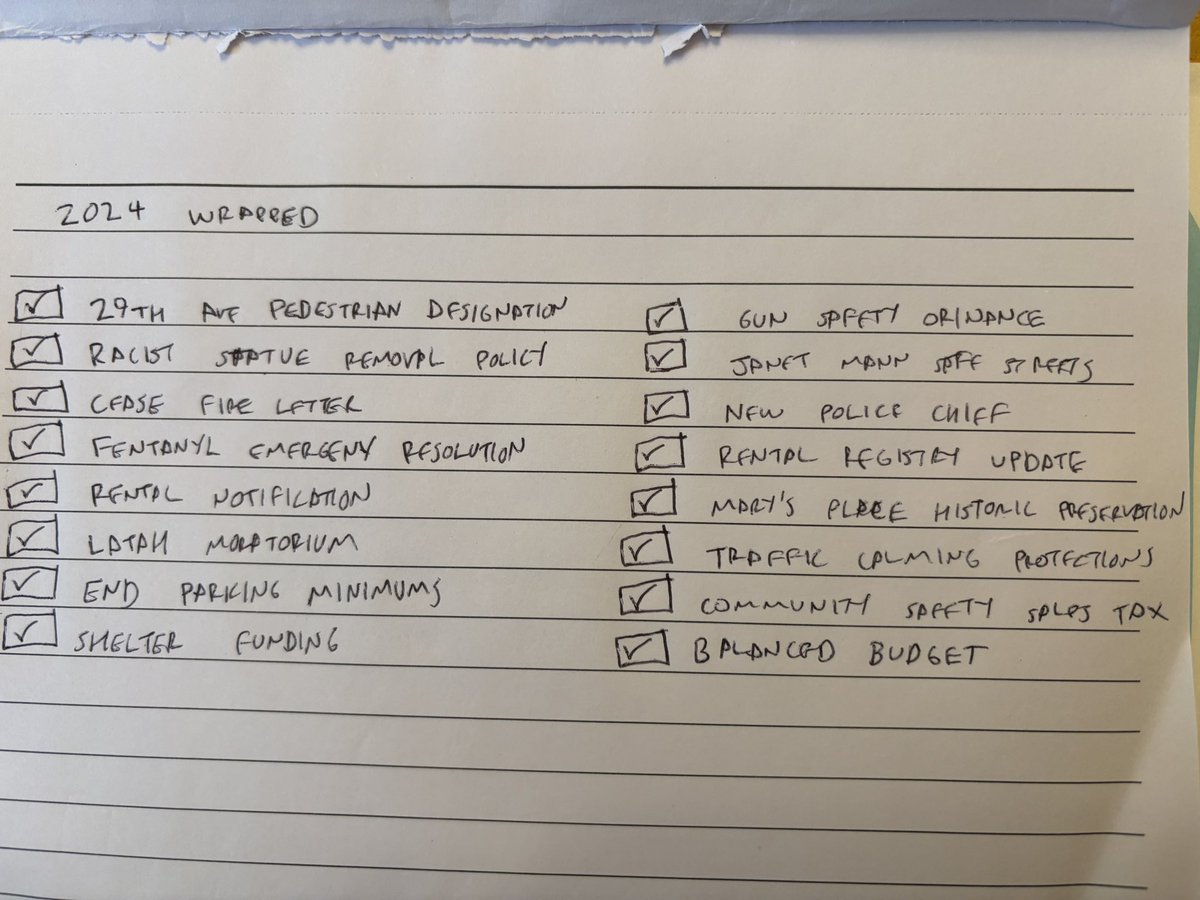 2024 WRAPPED
29TH AVE PEDESTRIAN DESIGNATION
RACIST STATUE REMOVAL POLICY
CEASE FIRE LETTER
FENTANYL EMERGENY RESOLUTION
RENTAL NOTIFICATION
LATAH MORATORIUM
END PARKING MINIMUMS
SHELTER FUNDING
GUN SAFETY ORINANCE
JANET MANN SAFE STREETS
NEW POLICE CHIEF
RENTAL REGISTRY UPDATE
MARY'S PLACE HISTORIC PRESERVATION
TRAFFIC CALMING PROTECTIONS
COMMUNITY SAFETY SALES TAX
BALANCED BUDGET